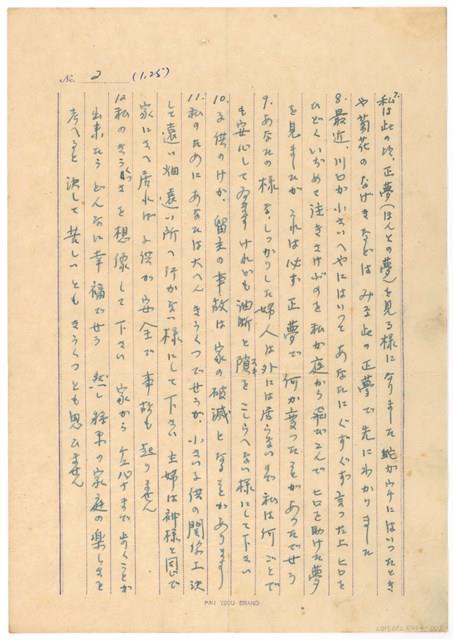 No. 2 (1.25)
7.私は此の次、正夢(ほんとの夢)を見る様になりました 蛇がウチにはいったとき
や菊花のなげきなどはみな此の正夢で先にわかりました
8.最近、川口が小さいへやにはいって あなたにぐずぐず言った上 ヒロを
ひどくいぢめて泣きさけぶのを私が庭から飛びこんで ヒロを助けた夢
を見ましたが これは必ず正夢で 何か変ったことがあったでせう
9.あなたの様な、しっかりした婦人は外には居らないので 私は何ごとで
も安心して居ますけれども油断と隙をこしらへない様にして下さい
スキ
10.子供のけが、留主の事故は家の破滅となることがあります
11.私のためにあなたは大へん きうくつでせうが、小さい子供の関係上 決
して遠い畑 遠い所へ行かない様にして下さい 主婦は神様と同じで
家にさへ居れば子供が安全で 事故も起りません
12.私のきうくつさを想像して下さい 家から まで歩くことが
出来たら どんなに幸福でせう 然し将来の家庭の楽しさを
考へると決して苦しいとも きうくつとも思ひません
PAU YSOU BRAND